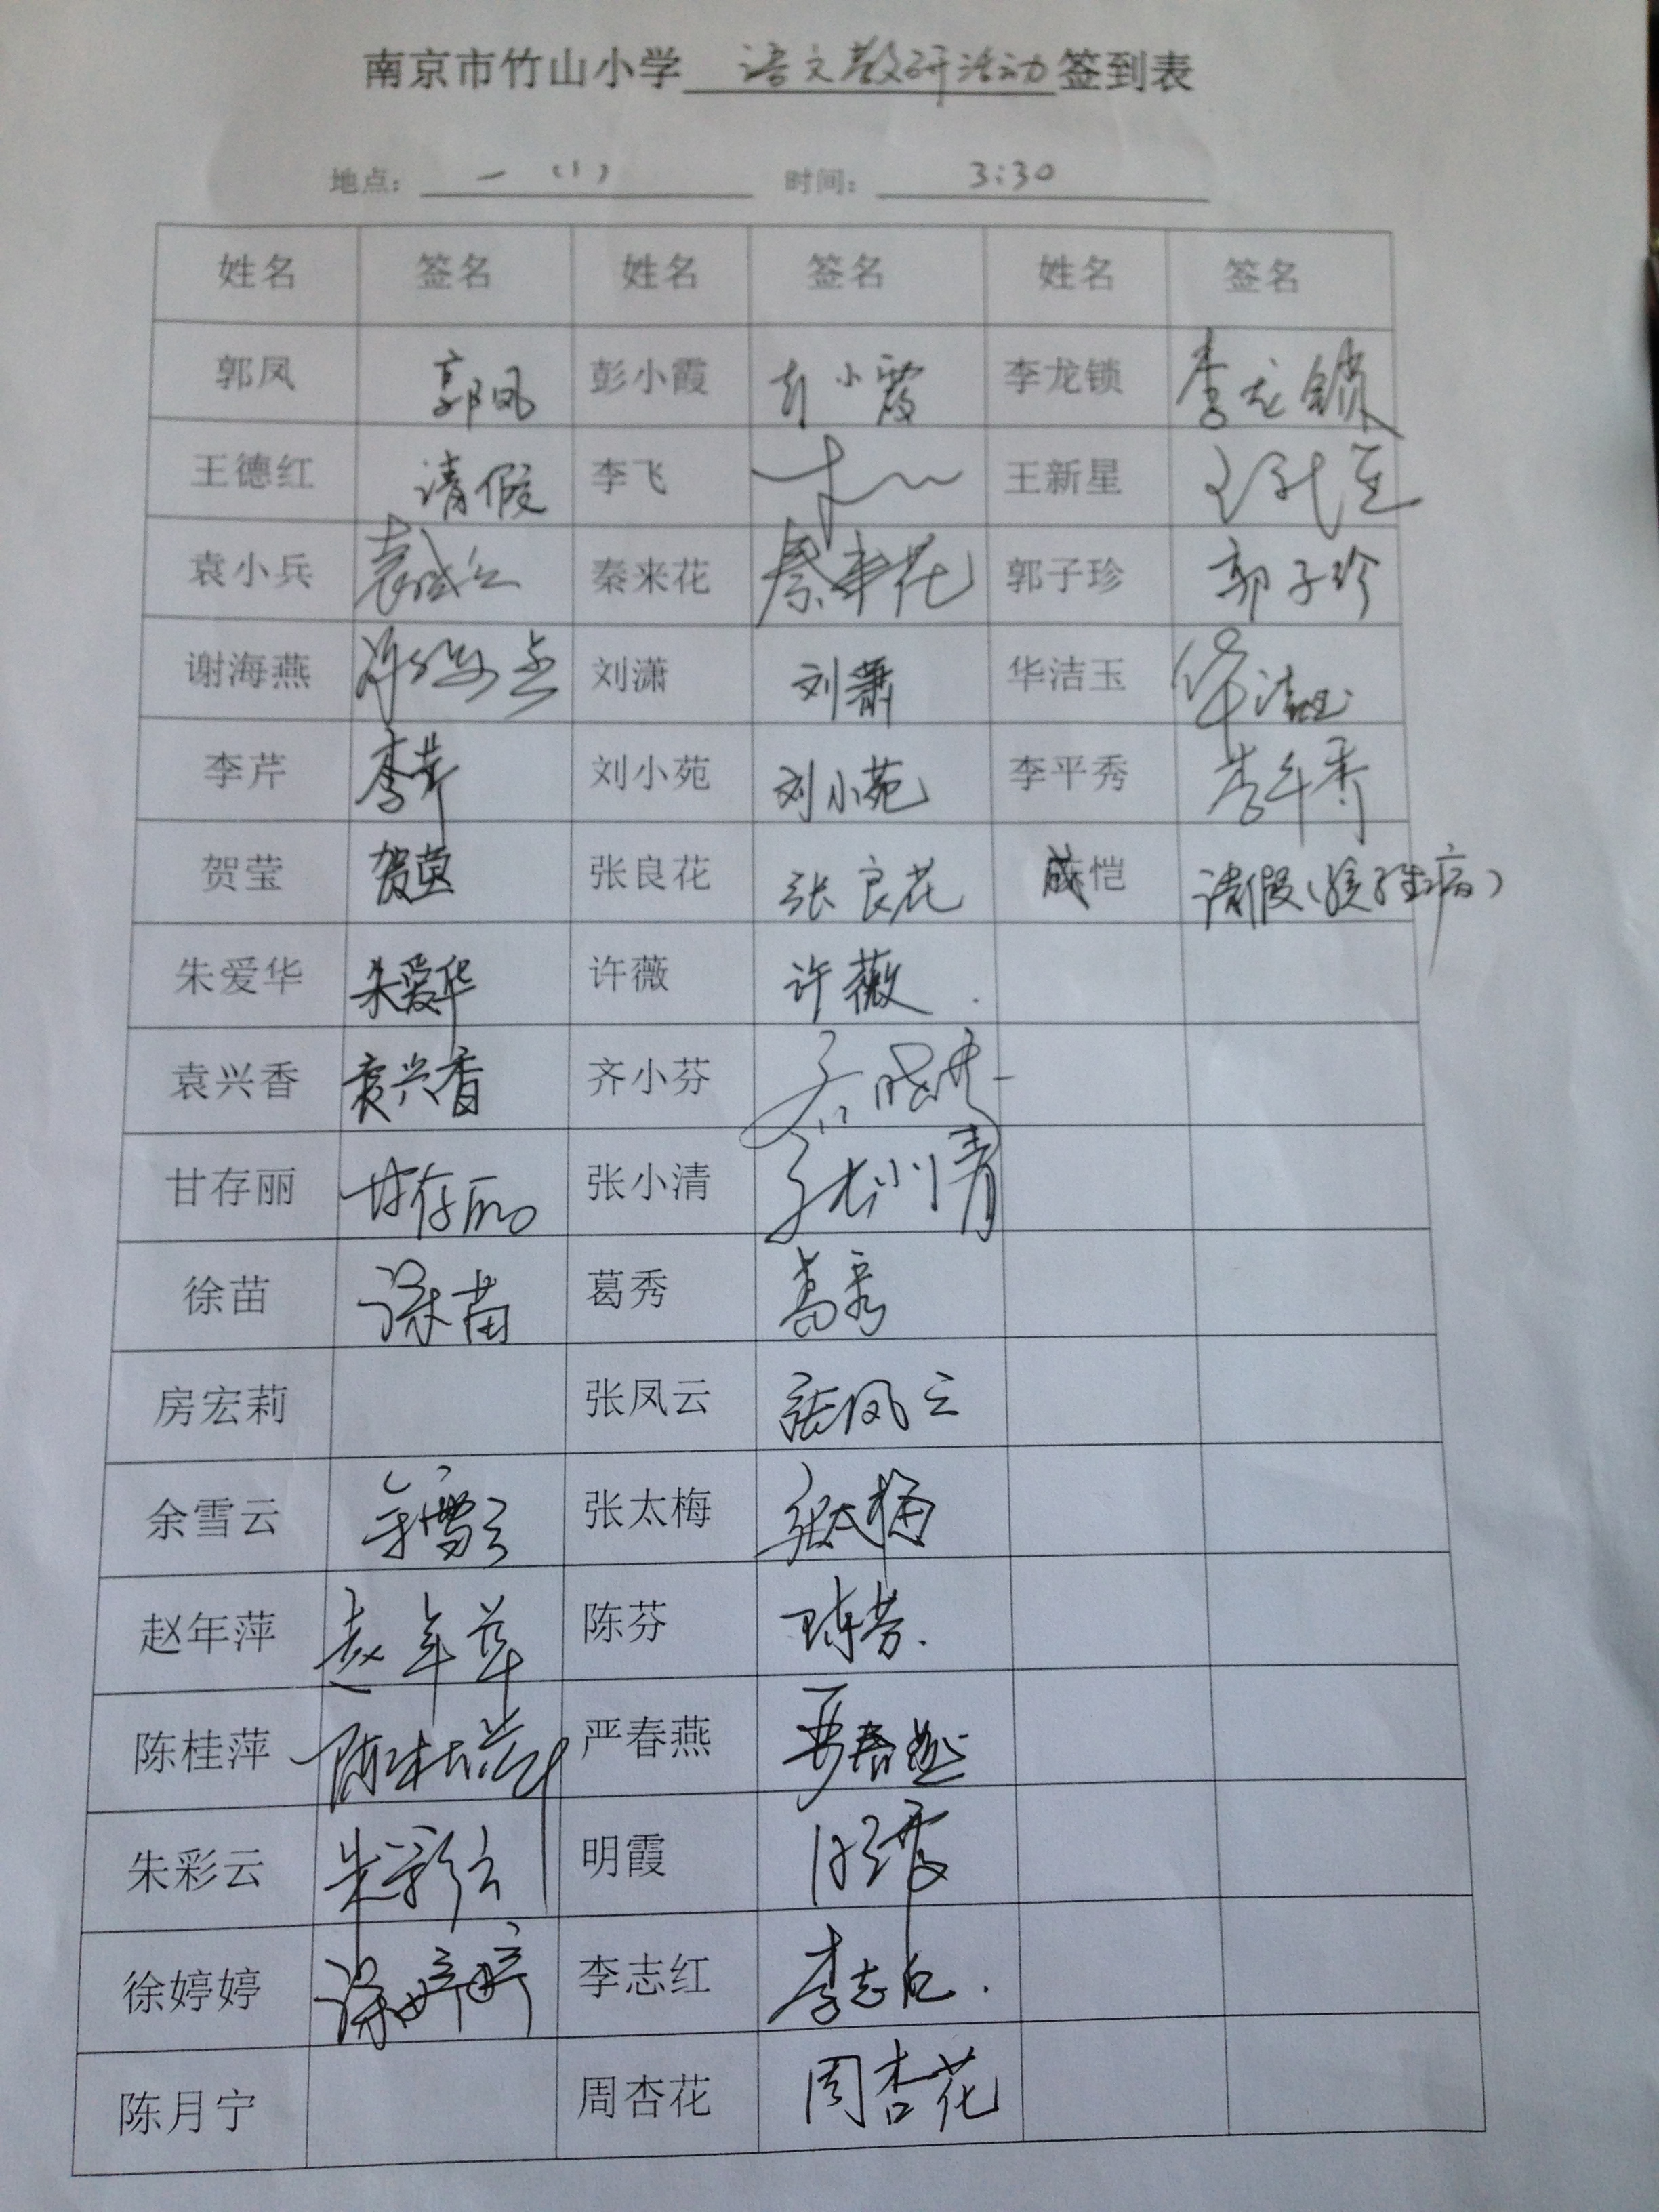 南京市竹山小学 语文教研活动 签到表
地点： 一（1） 时间： 3:30
姓名 签名 姓名 签名 姓名 签名
郭凤 郭凤 彭小霞 彭小霞 李龙锁 李龙锁
王德红 请假 李飞 王新星 王新星
袁小兵 袁小兵 秦来花 秦来花 郭子珍 郭子珍
谢海燕 谢海燕 刘潇 刘萧 华洁玉 华洁玉
李芹 李芹 刘小苑 刘小苑 李平秀 李平秀
贺莹 贺莹 张良花 张良花 臧恺 请假（孩子生病）
朱爱华 朱爱华 许薇 许薇
袁兴香 袁兴香 齐小芬 齐晓芬
甘存丽 甘存丽 张小清 张小清
徐苗 徐苗 葛秀 葛秀
房宏莉 张凤云 张凤云
余雪云 余雪云 张太梅 张太梅
赵年萍 赵年萍 陈芬 陈芬
陈桂萍 陈桂萍 严春燕 严春燕
朱彩云 朱彩云 明霞 明霞
徐婷婷 徐婷婷 李志红 李志红
陈月宁 周杏花 周杏花